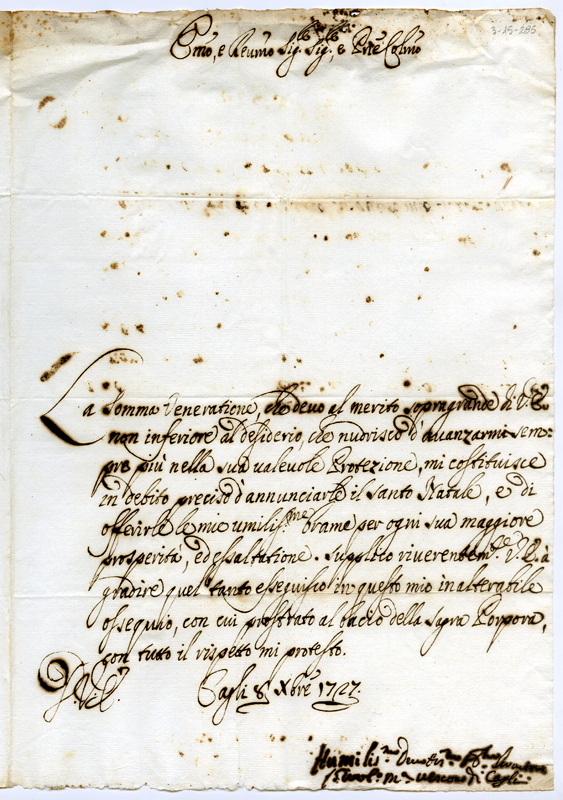 3-15-285
Emo, e Reumo Sig.r Sig.r, e Prñe Colmo
La somma Veneratione, che devo al merito sopragrande di V.E.
non inferiore al desiderio, che nudrisco d'avanzarmi sem=
pre più nella sua valevole Protezione, mi costituisce
in debito preciso d'annunciarle il santo Natale, e di
offerirle le mie umilis.me brame per ogni sua maggiore
prosperità, ed essaltatione. Supplico riverentem.te V.E. à
gradire quel tanto esseguisco in questo mio inalterabile
ossequio, con cui prostrato al bacio della sagra Porpora,
con tutto il rispetto mi protesto.
Cagli 8 Xbre 1727.
Humilis.mo Devotis.mo
vescovo di Cagli